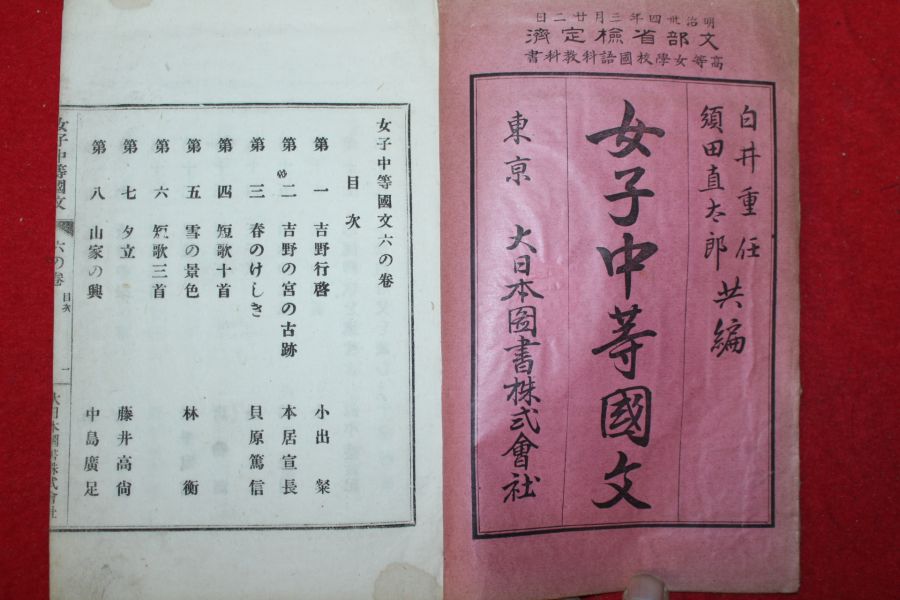 明治卅四年三月廿二日
文部省檢定濟
高等女學校國語科教科書
白井重任
須田直太郎
共編
女子中等國文
東京 大日本圖書株式會社
女子中等國文六の卷
目次
第一 吉野行啓 小出粲
第二 吉野の宮の古跡 本居宣長
第三 春のけしき 貝原篤信
第四 短歌十首
第五 雪の景色 林衡
第六 短歌三首
第七 夕立 藤井高尙
第八 山家の興 中島廣足
女子中等國文 六の卷 目次 一 大日本圖書株式會社